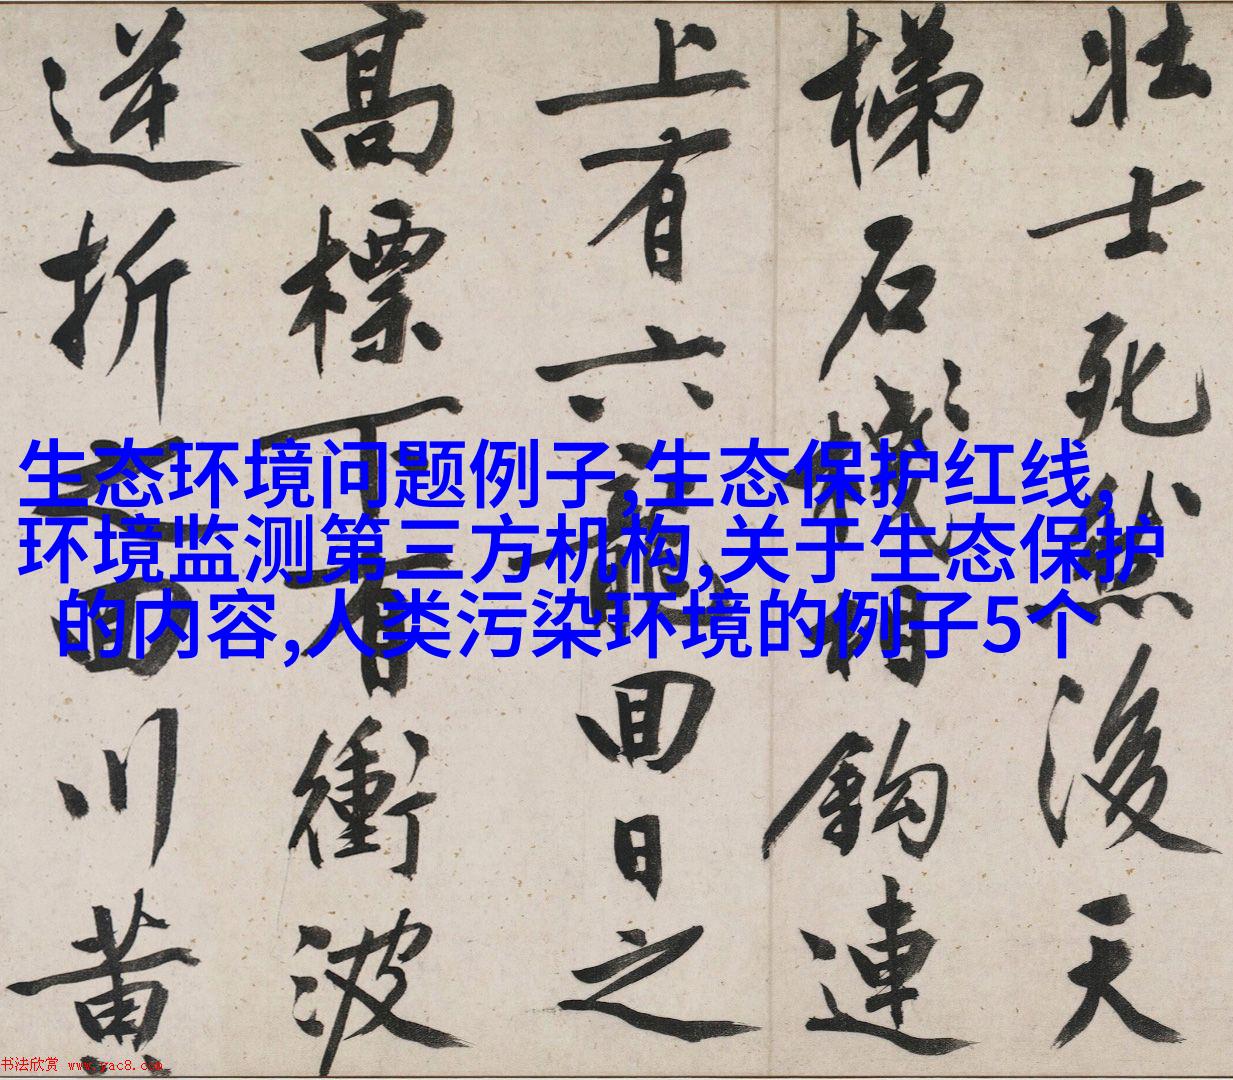 壮士死然後天
梯石棧相鉤連
上有六龍回日之
高標下有衝波
逆折之回川黄
生态环境问题例子,生态保护红线,
环境监测第三方机构,关于生态保护
的内容,人类污染环境的例子5个
书法欣赏 www.yac8.com